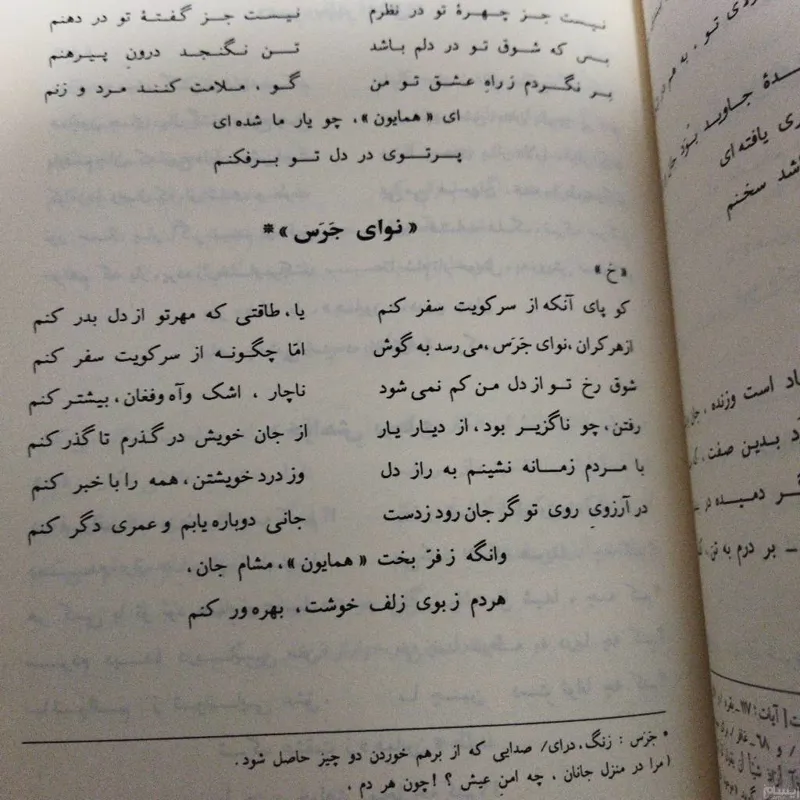 نیست جز چهرهٔ تو در نظرم نیست جز گفتهٔ تو در دهنم
بس که شوق تو در دلم باشد تن نگنجد درونِ پیرهنم
بر نگردم ز راهِ عشق تو من گو، ملامت کنند مرد و زنم
ای «همایون»، چو یار ما شده ای
پرتوی در دل تو برفکنم
«نوای جَرَس»*
«خ»
کو پای آنکه از سرکویت سفر کنم یا، طاقتی که مهرتو از دل بدر کنم
ازهرکران، نوای جَرَس، می رسد به گوش امّا چگونه از سرکویت سفر کنم
شوق رخ تو از دل من کم نمی شود ناچار، اشک وآه وفغان، بیشتر کنم
رفتن، چو ناگزیر بود، از دیار یار از جان خویش در گذرم تا گذر کنم
با مردم زمانه نشینم به راز دل وز درد خویشتن، همه را با خبر کنم
در آرزوی روی تو گر جان رود زدست جانی دوباره یابم و عمری دگر کنم
وانگه ز فرّ بخت «همایون»، مشام جان،
هردم ز بوی زلف خوشت، بهره ور کنم
* جَرَس: زنگ، درای/ صدایی که از برهم خوردن دو چیز حاصل شود.
(مرا در منزل جانان، چه امنِ عیش؟! چون هر دم،
لای تو، به مر
دهٔ جاوید بوَد
ری یافته ای
شد سخنم
اد است وزنده،
د بدین صفت،
گر دمیده در
– بر درم به تن،